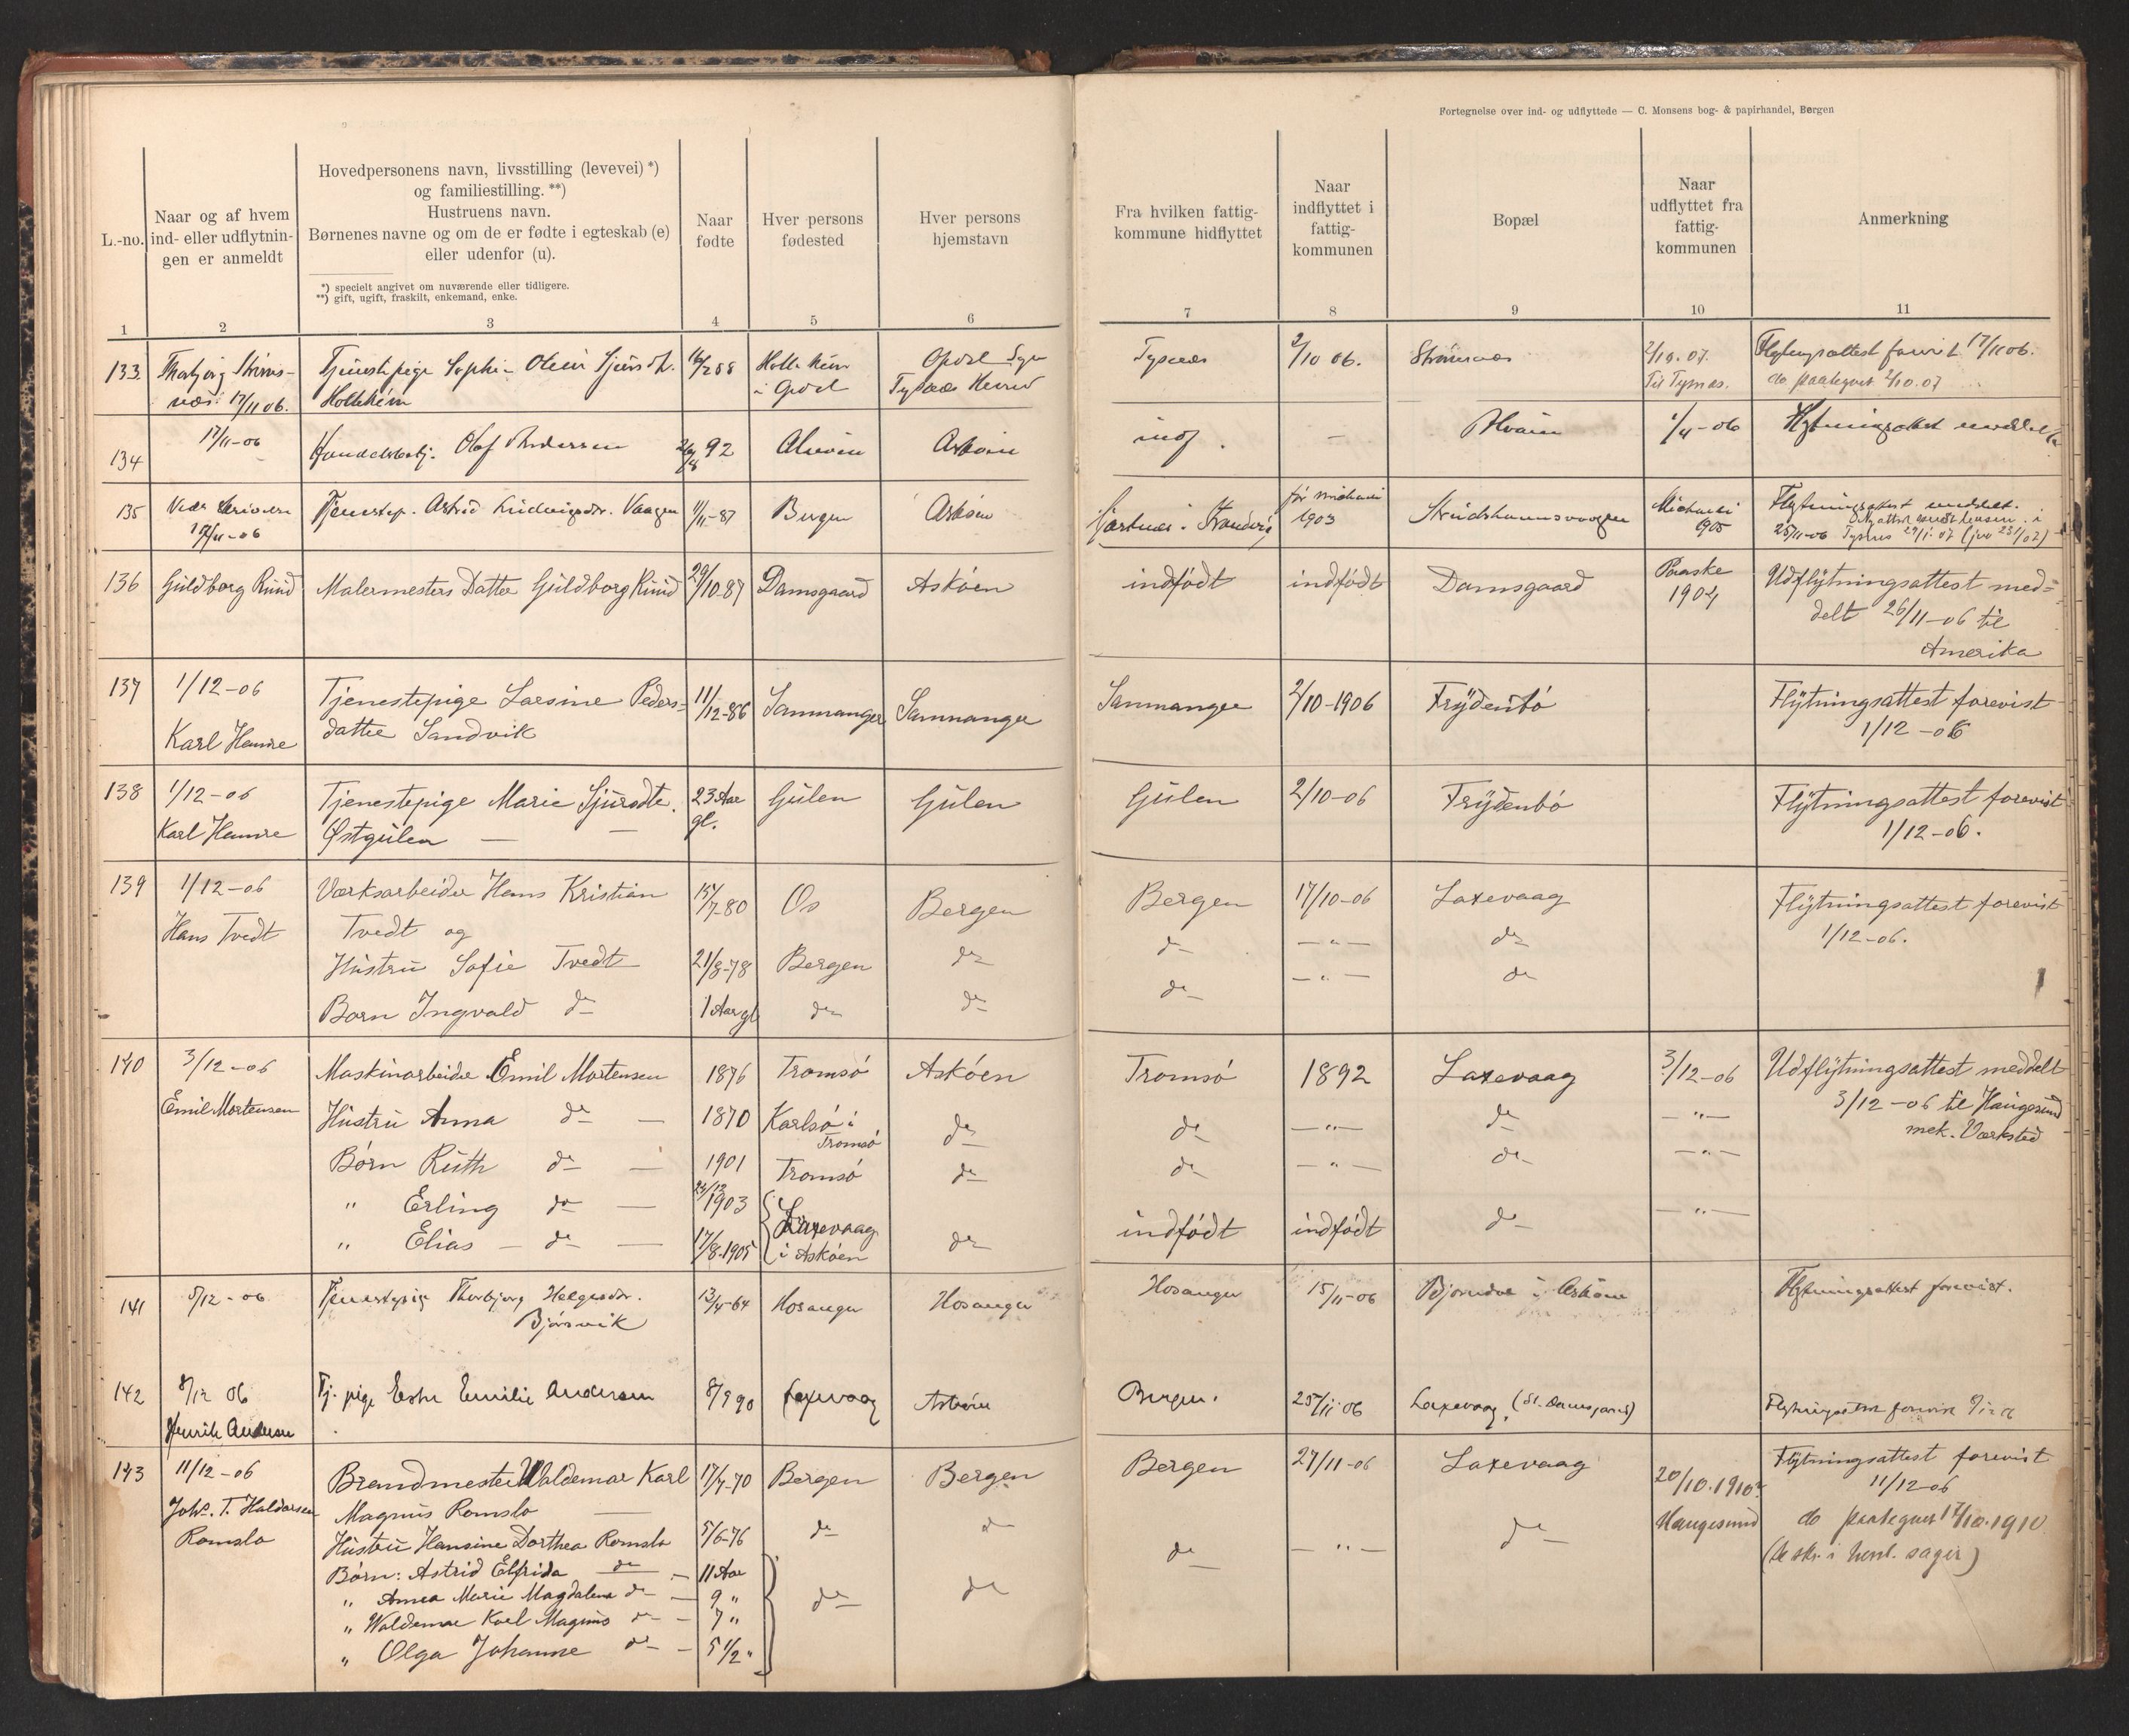 Fortegnelse over ind- og udflyttede — C. Monsens bog- & papirhandel, Bergen
L.-no.
Naar og af hvem
ind- eller udflytnin-
gen er anmeldt
Hovedpersonens navn, livsstilling (levevei) *)
og familiestilling. **)
Hustruens navn.
Børnenes navne og om de er fødte i egteskab (e)
eller udenfor (u).
*) specielt angivet om nuværende eller tidligere.
**) gift, ugift, fraskilt, enkemand, enke.
Naar
fødte
Hver persons
fødested
Hver persons
hjemstavn
Fra hvilken fattig-
kommune hidflyttet
Naar
indflyttet i
fattig-
kommunen
Bopæl
Naar
udflyttet fra
fattig-
kommunen
Anmerkning
1 2 3 4 5 6 7 8 9 10 11
133 Tjenestepige Tysnæs 2/10 06. Strømnæs 2/10.07. Flytningsattest 17/11 06.
17/11 06. Til Tysnæs. do paategnet 2/10.07
17/11-06
134 Olof Andersen 92 Askøen indf. — 1/4-06
135 Tjenestep. Astrid Ludvigsdr. Vaagen 1/11-87 Bergen Askøen 1903 Michaeli Flytningsattest meddelt.
17/11-06 1905 25/11-06
136 Guldborg Ruud Malermesters Datter Guldborg Ruud 29/10-87 Damsgaard Askøen indfødt indfødt Damsgaard Paaske Udflytningsattest med=
1904 delt 26/11-06 til
Amerika
137 1/12-06 Tjenestepige Larsine Peders= 11/12-86 Samnanger Samnanger Samnanger 2/10-1906 Frydenbø Flytningsattest forevist
Karl Hamre datter Sandvik 1/12-06
138 1/12-06 Tjenestepige Marie Sjursdtr. 23 Aar Gulen Gulen Gulen 2/10-06 Frydenbø Flytningsattest forevist
Karl Hamre Østgulen — — gl. 1/12-06.
139 1/12-06 Værksarbeider Hans Kristian 15/7-80 Os Bergen Bergen 17/10-06 Laxevaag Flytningsattest forevist
Hans Tvedt Tvedt og do —"— do 1/12-06.
Hustru Sofie Tvedt 21/8-78 Bergen do —"— do
Barn Ingvald do 1 Aar gl do do do
140 3/12-06 Maskinarbeider Emil Mortensen 1876 Tromsø Askøen Tromsø 1892 Laxevaag 3/12-06 Udflytningsattest meddelt
Emil Mortensen Hustru Anna do — 1870 Karlsø i do do —"— do —"— 3/12-06 til Haugesund
Tromsø mek. Værksted
Børn Ruth do — 1901 Tromsø do do —"— do —"—
" Erling do — 23/12 1903 Laxevaag indfødt indfødt do —"—
" Elias — do — 17/8-1905 i Askøen do
141 5/12-06 Tjenestepige Thorbjørg Helgesdr. 13/4-64 Hosanger Hosanger Hosanger 15/11-06 Bjørndal i Askøen Flytningsattest forevist.
Bjørsvik
142 8/12 06 Tj. pige Ester Emilie Andersen 8/9 90 Laxevaag Askøen Bergen. 25/11 06 Laxevaag (St. Damsgaard) Flytningsattest forevist
Henrik Andersen
143 11/12-06 Brandmester Waldemar Karl 17/4-70 Bergen Bergen Bergen 27/11-06 Laxevaag 20/10.1910 Flytningsattest forevist
Johs. T. Haldorsen Magnus Romslo — Haugesund 11/12-06
Romslo Hustru Hansine Dorthea Romslo 5/6-76 do do do —"— do do paategnet 17/10.1910
Børn: Astrid Elfrida do — 11 Aar do do
" Anna Marie Magdalena do — 9 "
" Waldemar Karl Magnus do — 7 "
" Olga Johanne do — 5 1/2 "